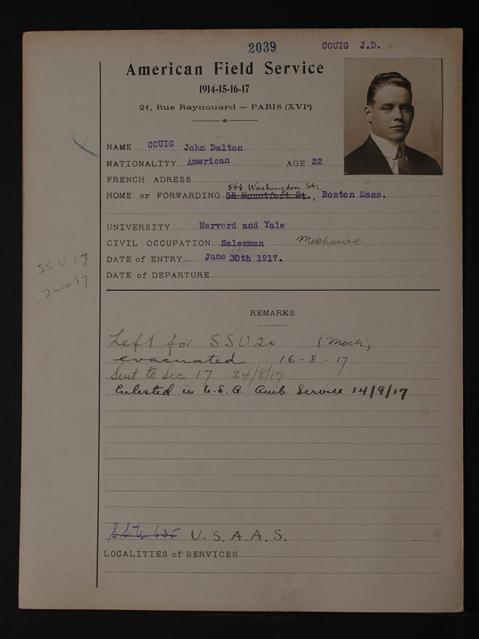 2039 COUIG J.D.
American Field Service
1914-15-16-17
21, Rue Raynouard — PARIS (XVIe)
NAME COUIG John Dalton
NATIONALITY American AGE 22
FRENCH ADRESS
554 Washington St.
HOME or FORWARDING 56 Mountfort St., Boston Mass.
UNIVERSITY Harvard and Yale
CIVIL OCCUPATION Salesman Mechanic
DATE of ENTRY June 30th 1917.
DATE of DEPARTURE
SSU 17
REMARKS
Left for SSU 20 (Mech)
evacuated 16-8-17
Sent to Sec 17 24/8/17
Enlisted in U.S.A. Amb. Service 14/9/17
U.S.A.A.S.
LOCALITIES of SERVICES